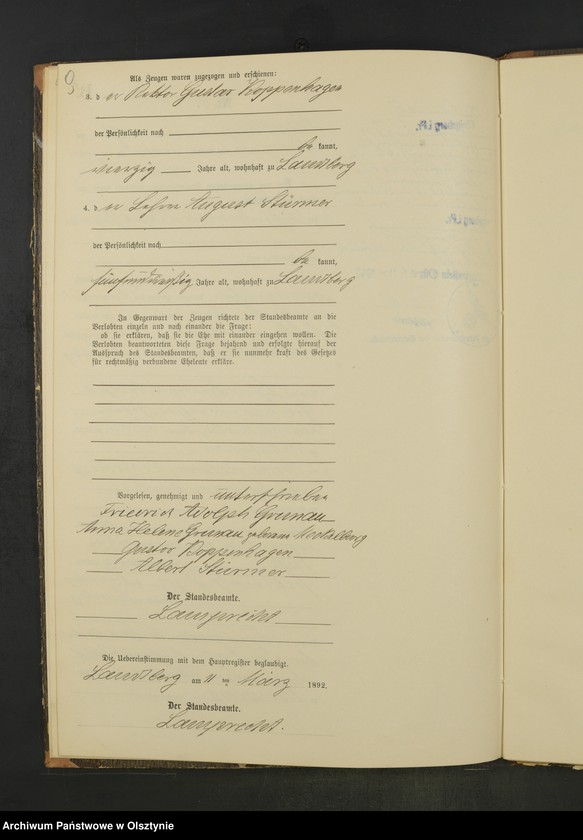 9
Als Zeugen waren zugezogen und erschienen:
3. der Rektor Gustav Koppenhagen
der Persönlichkeit nach
be kannt,
vierzig Jahre alt, wohnhaft zu Landsberg
4. der Lehrer August Stürmer
der Persönlichkeit nach
be kannt,
fünfunddreißig Jahre alt, wohnhaft zu Landsberg
In Gegenwart der Zeugen richtete der Standesbeamte an die
Verlobten einzeln und nach einander die Frage:
ob sie erklären, daß sie die Ehe mit einander eingehen wollen. Die
Verlobten beantworteten diese Frage bejahend und erfolgte hierauf der
Ausspruch des Standesbeamten, daß er sie nunmehr kraft des Gesetzes
für rechtmäßig verbundene Eheleute erkläre.
Vorgelesen, genehmigt und unterschrieben
Friedrich Adolph Grunau
Anna Helene Grunau geborene
Gustav Koppenhagen
Albert Stürmer
Der Standesbeamte.
Lamprecht
Die Uebereinstimmung mit dem Hauptregister beglaubigt.
Landsberg am 11 ten März 1892.
Der Standesbeamte.
Lamprecht.
Archiwum Państwowe w Olsztynie